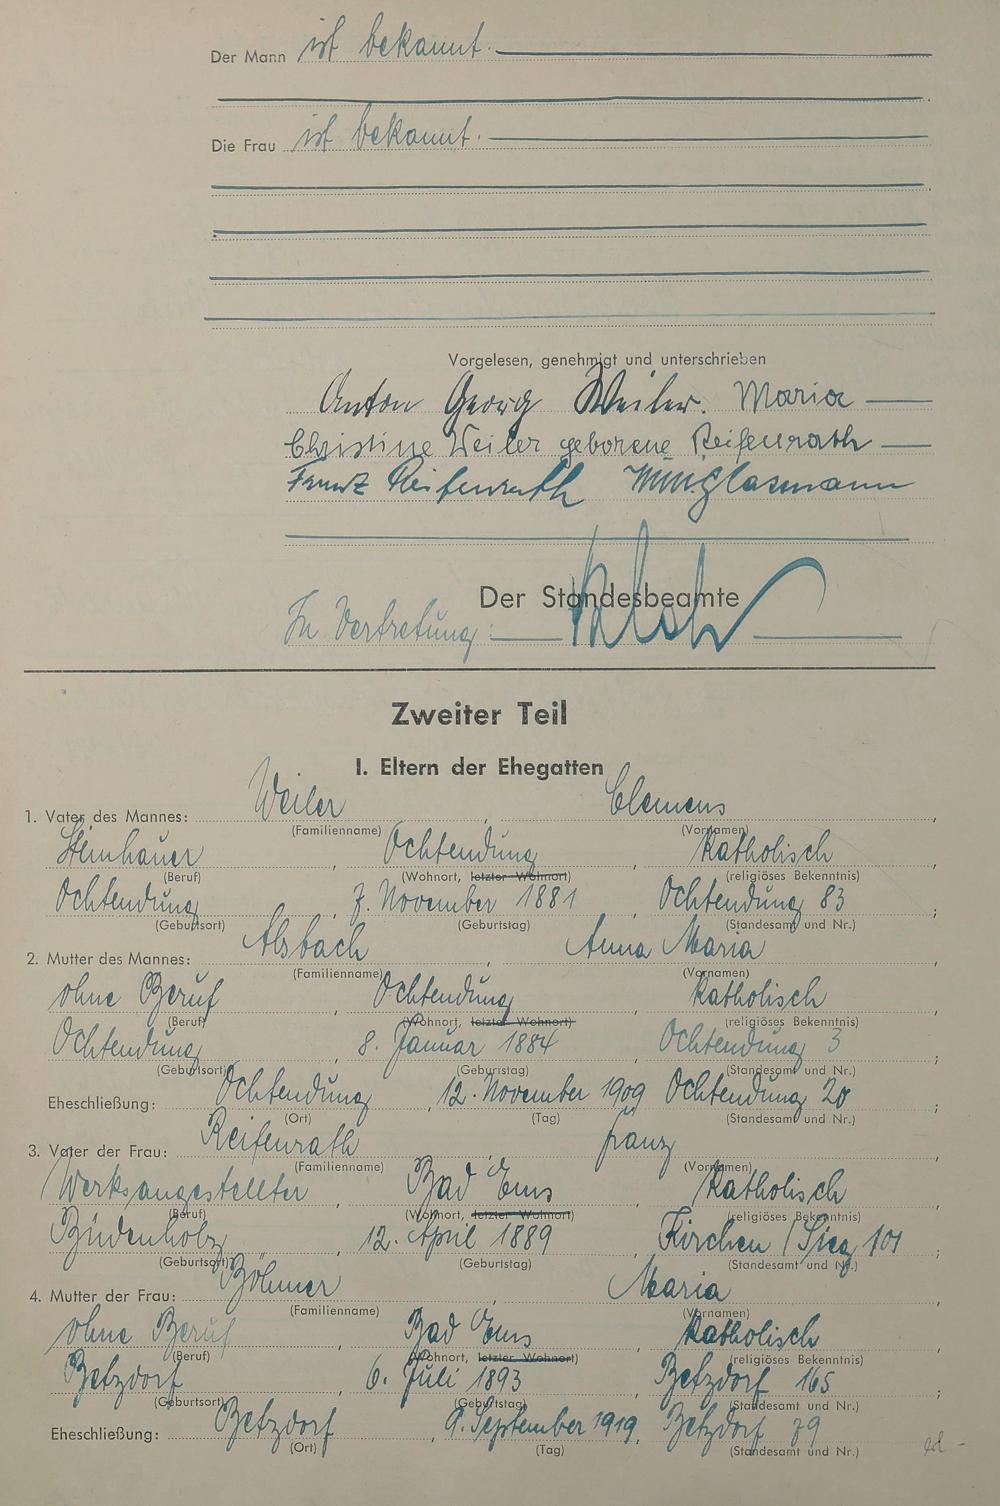 Der Mann ist bekannt.
Die Frau ist bekannt.
Vorgelesen, genehmigt und unterschrieben
Anton Georg Weiler. Maria
Christine Weiler geborene Reifenrath
Franz Reifenrath Glasmann
Der Standesbeamte
In Vertretung:
Zweiter Teil
I. Eltern der Ehegatten
1. Vater des Mannes: Weiler, Clemens,
(Familienname) (Vornamen)
Steinhauer, Ochtendung, Katholisch,
(Beruf) (Wohnort, letzter Wohnort) (religiöses Bekenntnis)
Ochtendung, 7. November 1881, Ochtendung 83;
(Geburtsort) (Geburtstag) (Standesamt und Nr.)
2. Mutter des Mannes: Alsbach, Anna Maria,
(Familienname) (Vornamen)
ohne Beruf, Ochtendung, Katholisch,
(Beruf) (Wohnort, letzter Wohnort) (religiöses Bekenntnis)
Ochtendung, 8. Januar 1884, Ochtendung 3;
(Geburtsort) (Geburtstag) (Standesamt und Nr.)
Eheschließung: Ochtendung, 12. November 1909 Ochtendung 20;
(Ort) (Tag) (Standesamt und Nr.)
3. Vater der Frau: Reifenrath, Franz,
(Familienname) (Vornamen)
Werksangestellter, Bad Ems, Katholisch,
(Beruf) (Wohnort, letzter Wohnort) (religiöses Bekenntnis)
Büdenholz, 12. April 1889, Kirchen/Sieg 101;
(Geburtsort) (Geburtstag) (Standesamt und Nr.)
4. Mutter der Frau: Böhmer, Maria,
(Familienname) (Vornamen)
ohne Beruf, Bad Ems, Katholisch,
(Beruf) (Wohnort, letzter Wohnort) (religiöses Bekenntnis)
Betzdorf, 6. Juli 1893, Betzdorf 165;
(Geburtsort) (Geburtstag) (Standesamt und Nr.)
Eheschließung: Betzdorf, 9. September 1919, Betzdorf 79
(Ort) (Tag) (Standesamt und Nr.)